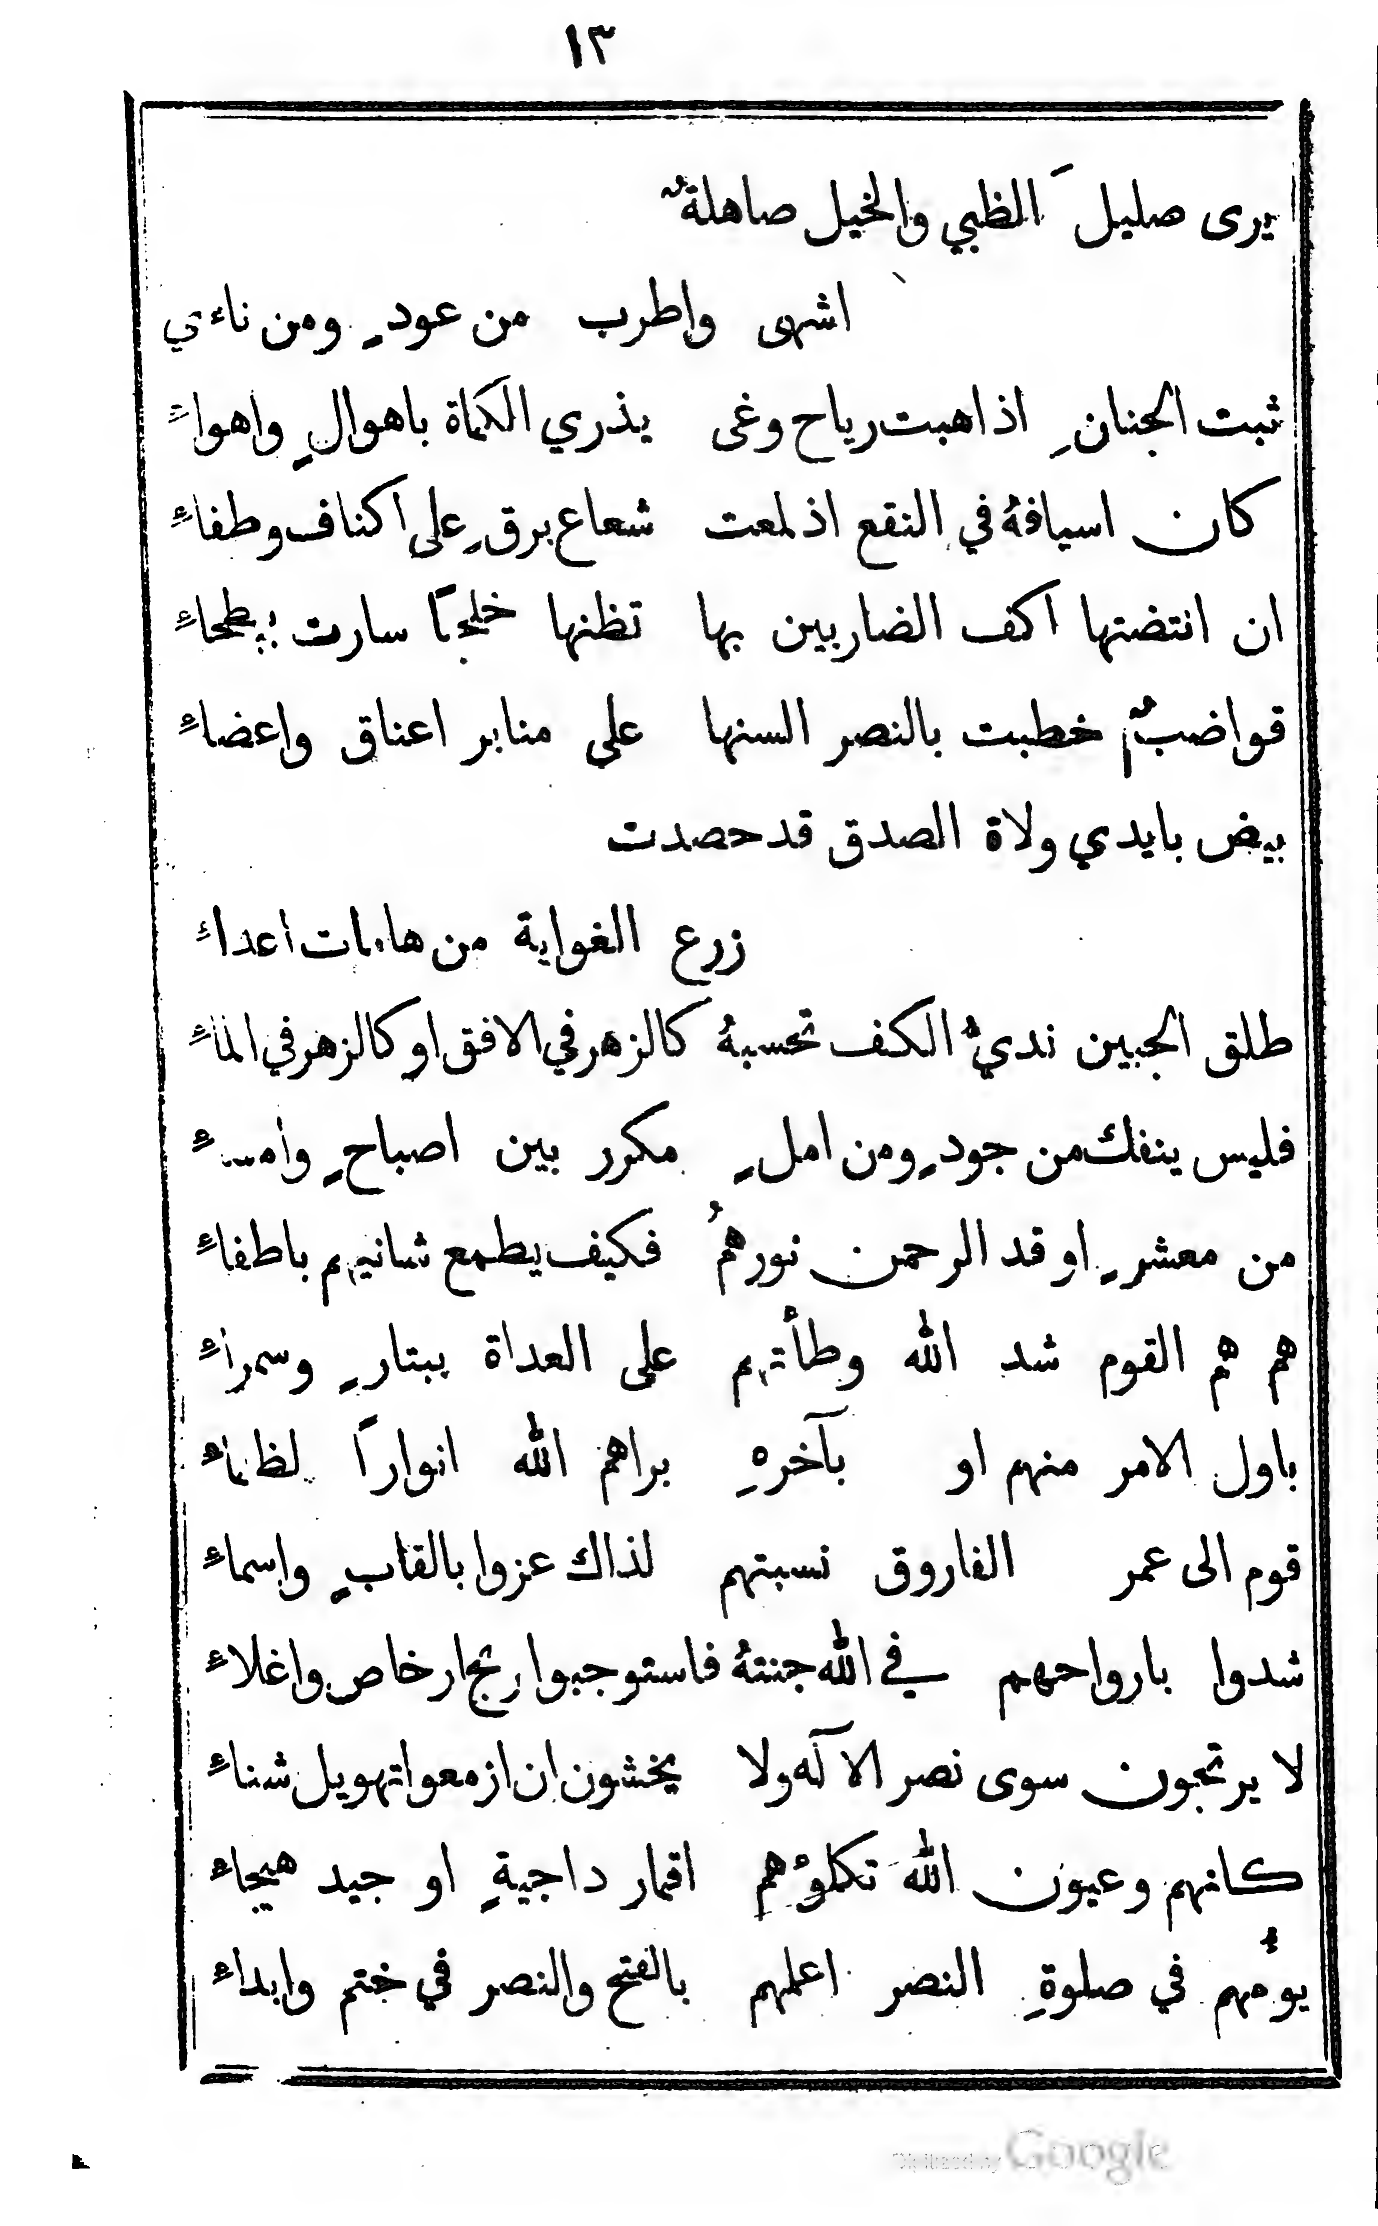 ١٣
يرى صليلَ الظبي والخيل صاهلةٌ
اشهى واطرب من عودٍ ومن ناءي
ثبت الجنانِ اذا هبت رياح وغى يذري الكماة باهوالٍ واهواءِ
كان اسيافهُ في النقع اذ لمعت شعاع برقٍ على اكناف وطفاءِ
ان انتضتها اكف الضاربين بها تظنها خلجًا سارت ببطحاءِ
قواضبٌ خطبت بالنصر السنها على منابر اعناق واعضاءِ
بيض بايدي ولاة الصدق قد حصدت
زرع الغواية من هامات اعداءِ
طلق الجبين نديُّ الكف تحسبهُ كالزهر في الافق او كالزهر في الماءِ
فليس ينفك من جودٍ ومن املٍ مكرر بين اصباحٍ وامساءِ
من معشرٍ اوقد الرحمن نورهمُ فكيف يطمع شانيهم باطفاءِ
هم هم القوم شد الله وطأتهم على العداة ببتارٍ وسمراءِ
باول الامر منهم او بآخرهِ براهم الله انوارًا لظلماءِ
قوم الى عمر الفاروق نسبتهم لذاك عزوا بالقابٍ واسماءِ
شدوا بارواحهم في الله جنتهُ فاستوجبوا ربح ارخاص واغلاءِ
لا يرتجون سوى نصر الآله ولا يخشون ان ازمعوا تهويل شناءِ
كانهم وعيون الله تكلؤهم اقمار داجيةٍ او جيد هيجاءِ
يوَّمهم في صلوةِ النصر اعلمهم بالفتح والنصر في ختم وابداءِ
Digitized by Google